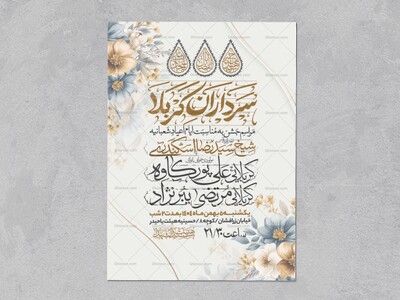 سرداران کربلا
مراسم جشن به مناسبت ایام اعیاد شعبانیه
شیخ سید رضا اسکندری
کربلائی علی پورکاوه
کربلائی مرتضی ببرنژاد
یکشنبه ۵ بهمن ماه ۱۴۰۴ بمدت ۲ شب
خیابان زرافشان / کوچه ۸ / حسینیه هیئت یا حیدر
ساعت ۲۱/۳۰